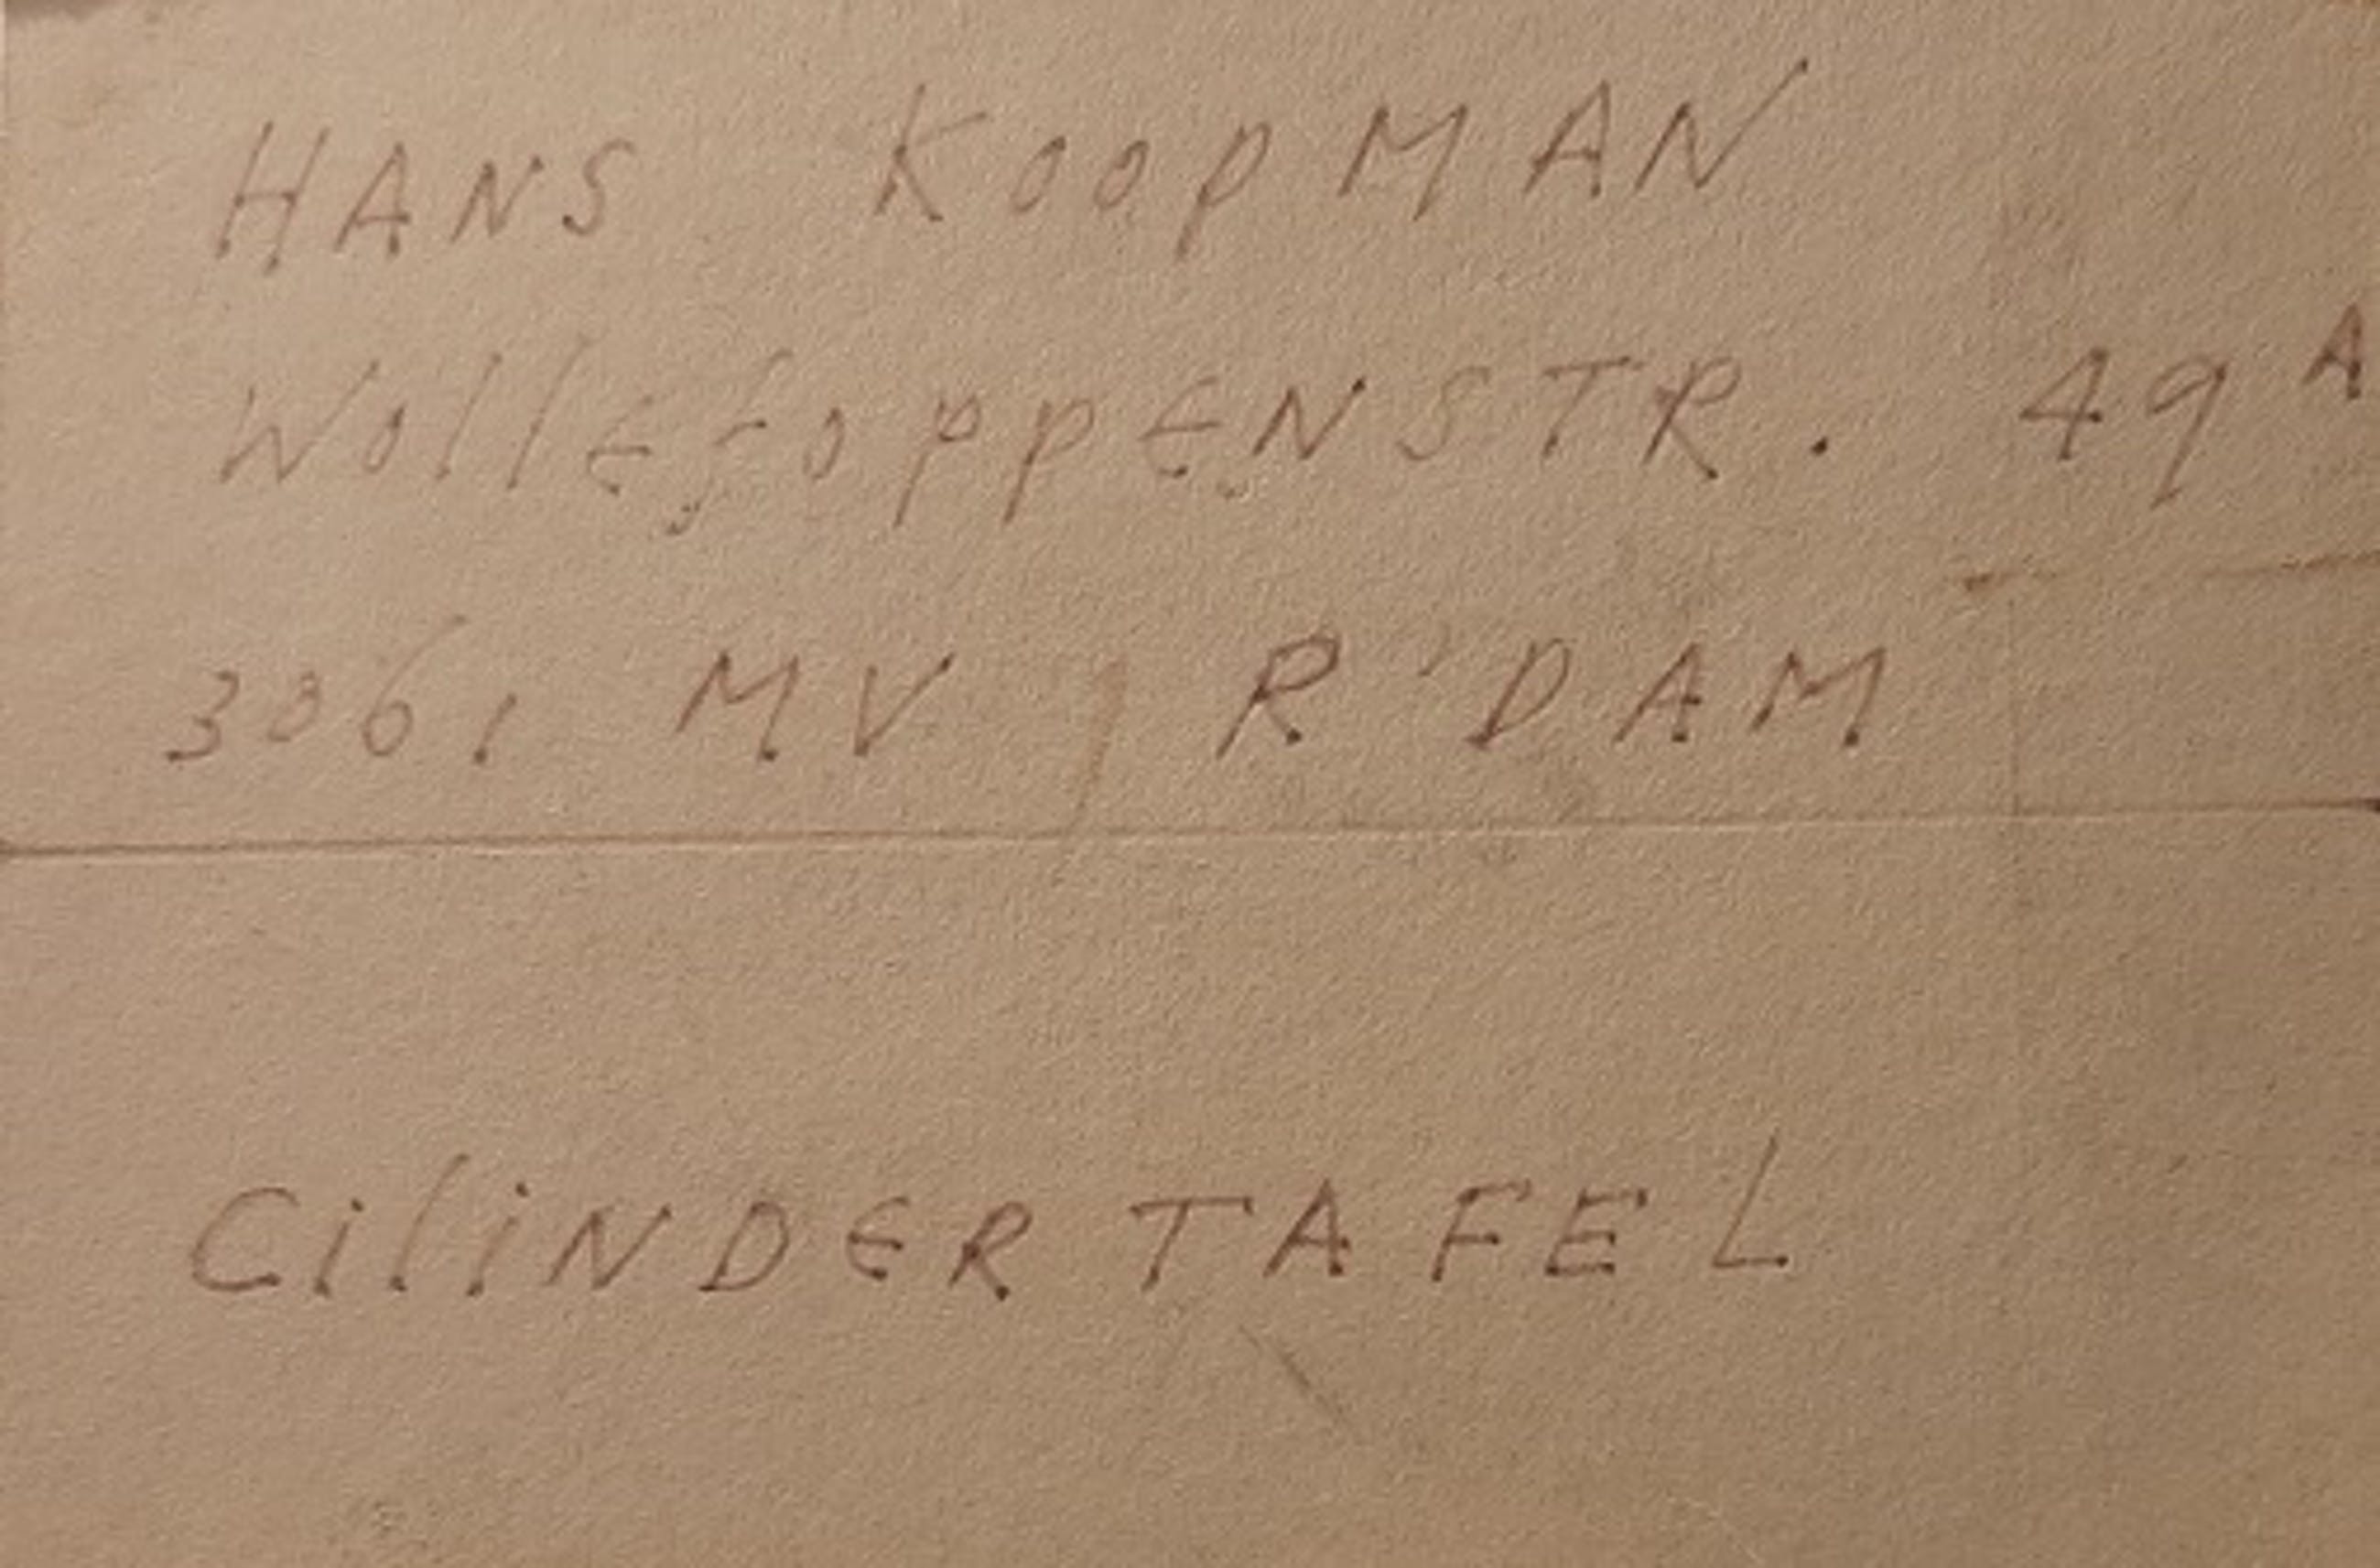 HANS KOOPMAN
WOllEfOppENSTR. 49 A
3061 MV R'DAM
CiliNDER TAFEL